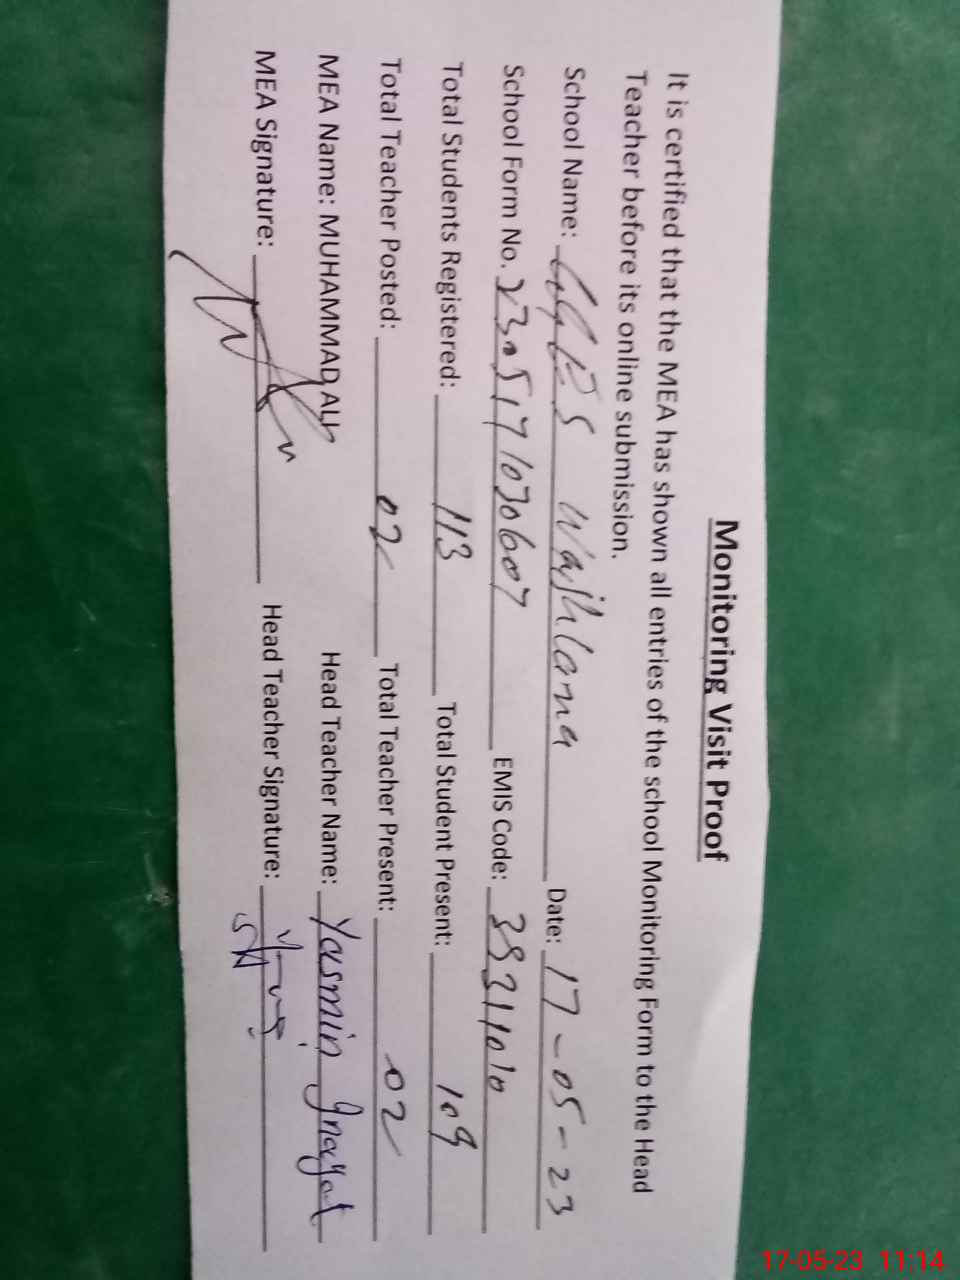 Monitoring Visit Proof
It is certified that the MEA has shown all entries of the school Monitoring Form to the Head
Teacher before its online submission.
School Name: GGPS Wajhlana Date: 17-05-23
School Form No. EMIS Code:
Total Students Registered: 113 Total Student Present: 109
Total Teacher Posted: 02 Total Teacher Present: 02
MEA Name: MUHAMMAD ALI Head Teacher Name: Yasmin Inayat
MEA Signature: Head Teacher Signature:
17-05-23 11:14